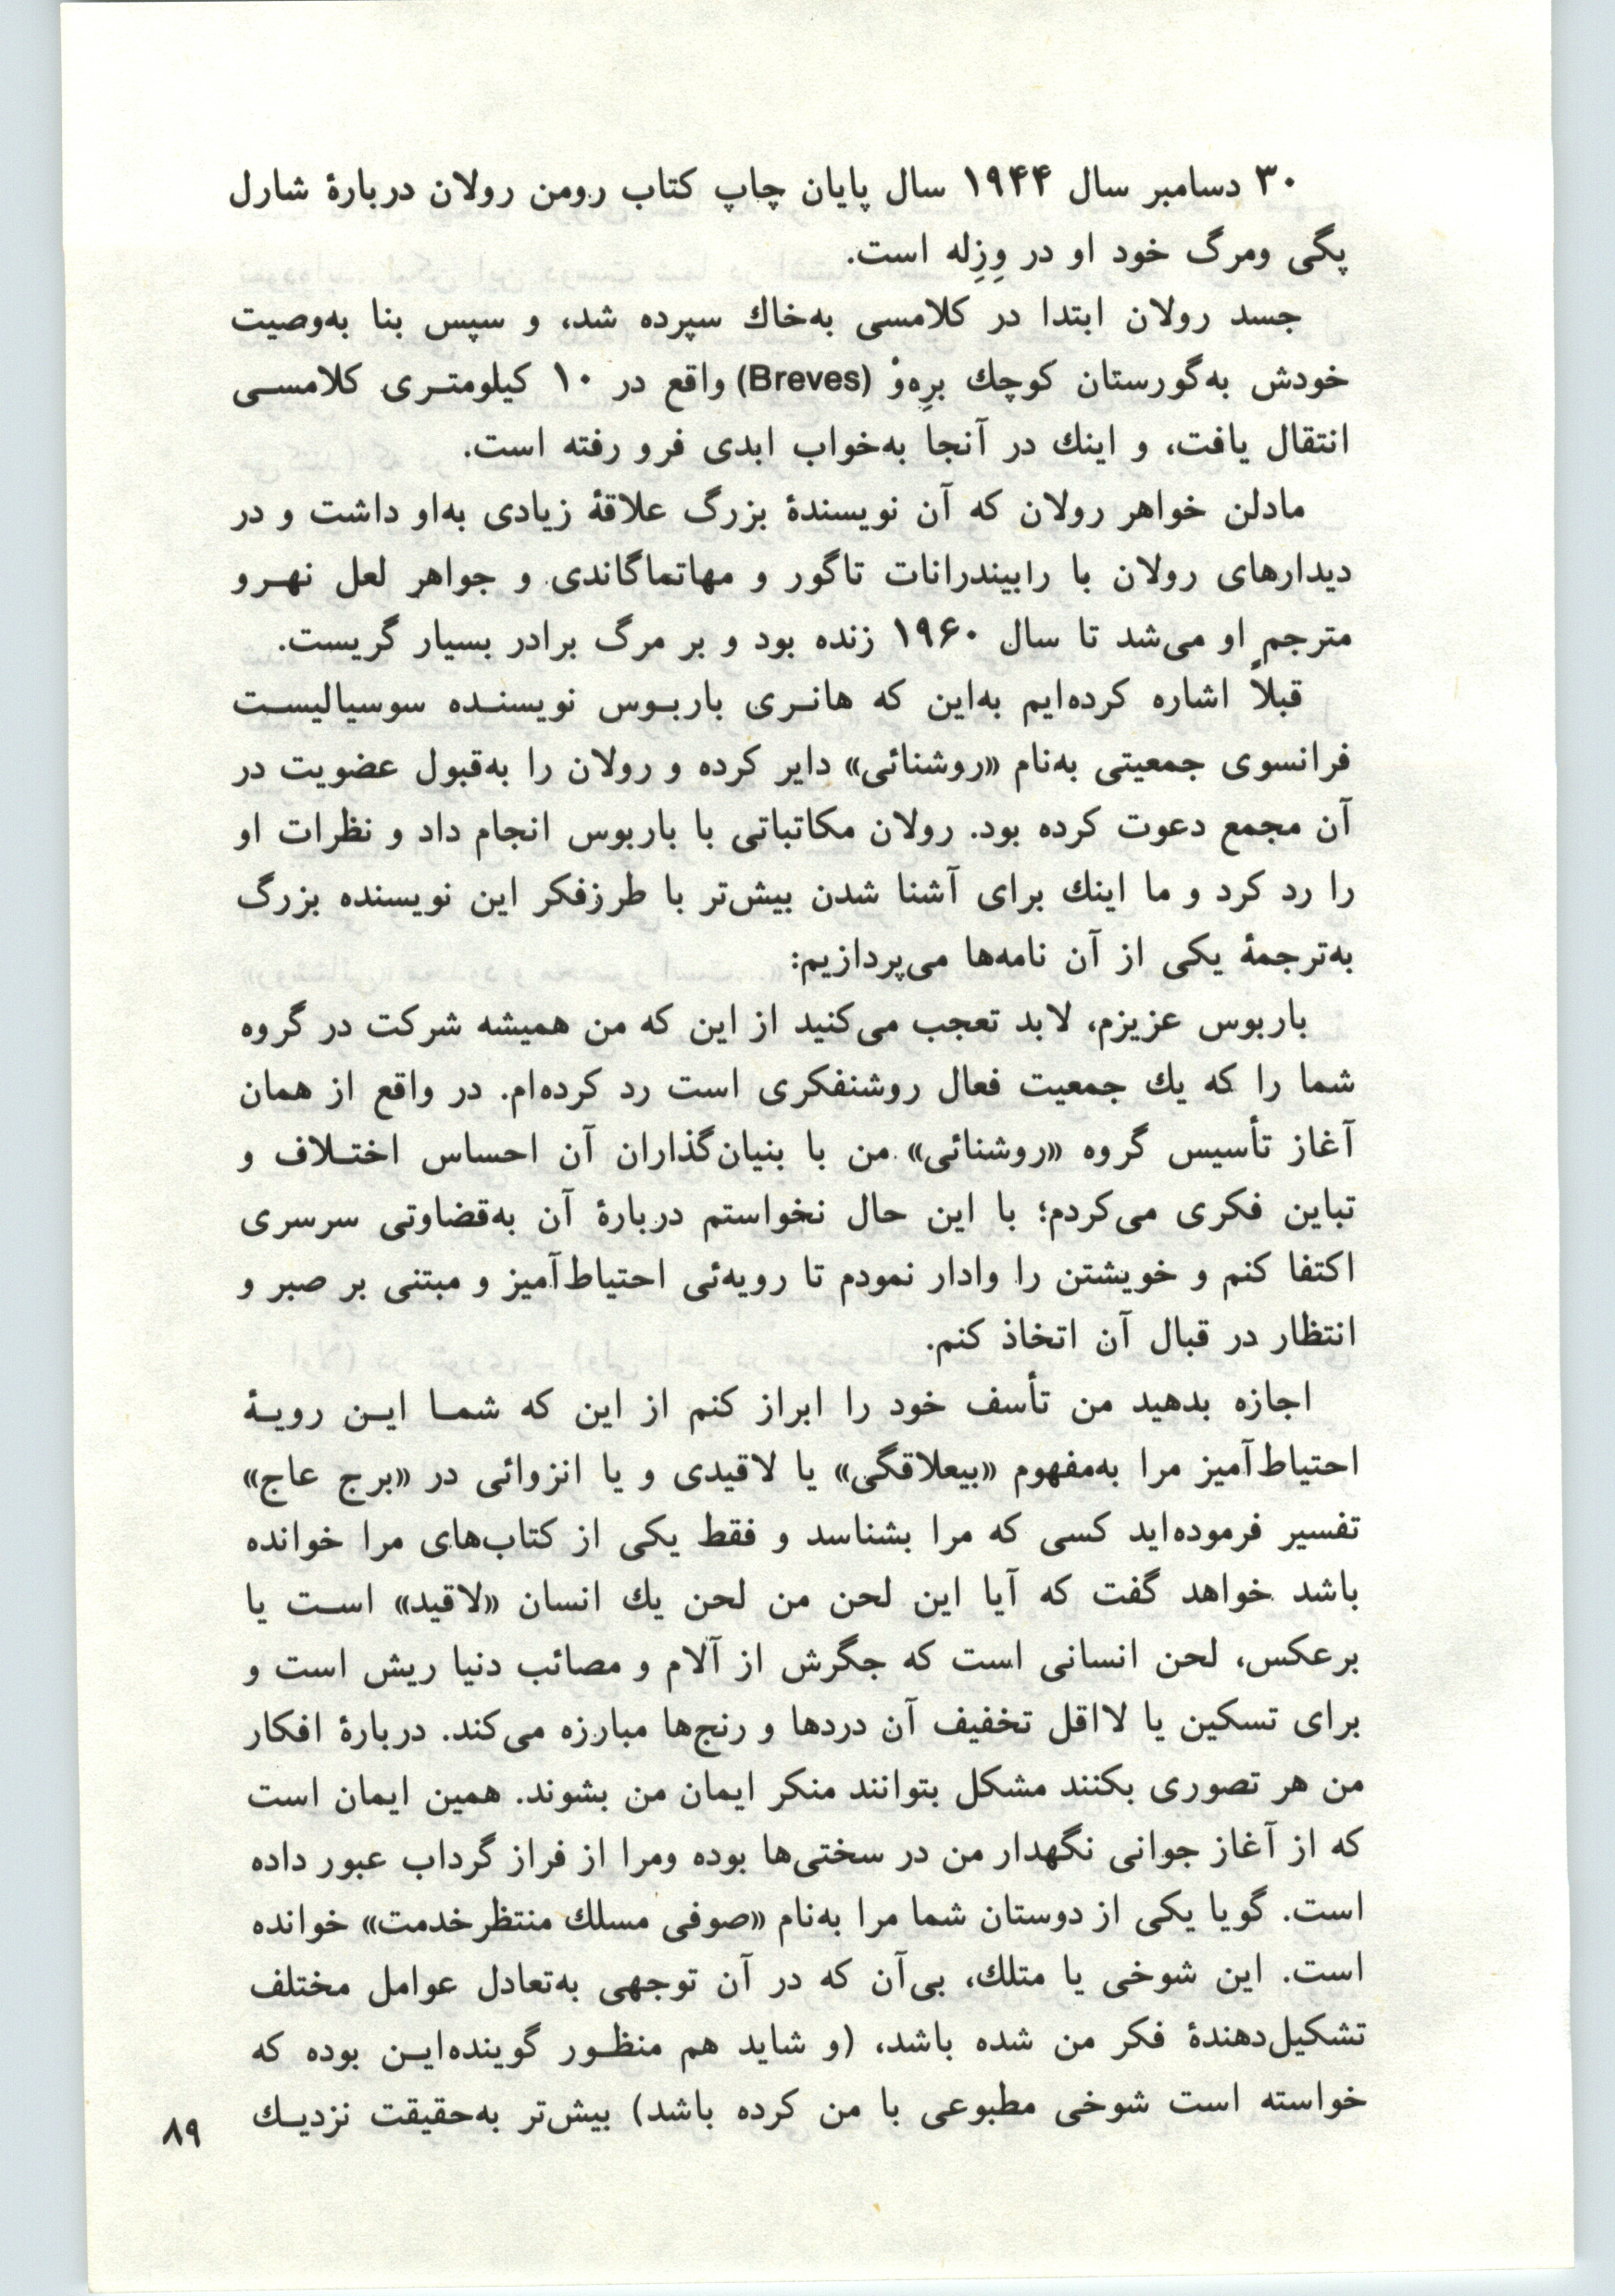 ۳۰ دسامبر سال ۱۹۴۴ سال پایان چاپ کتاب رومن رولان دربارهٔ شارل
پگی ومرگ خود او در وِزِله است.
جسد رولان ابتدا در کلامسی به‌خاك سپرده شد، و سپس بنا به‌وصیت
خودش به‌گورستان کوچك برِه‌وْ (Breves) واقع در ۱۰ کیلومتـری کلامسـی
انتقال یافت، و اینك در آنجا به‌خواب ابدی فرو رفته است.
مادلن خواهر رولان که آن نویسندهٔ بزرگ علاقهٔ زیادی به‌او داشت و در
دیدارهای رولان با رابیندرانات تاگور و مهاتماگاندی و جواهر لعل نهـرو
مترجم او می‌شد تا سال ۱۹۶۰ زنده بود و بر مرگ برادر بسیار گریست.
قبلاً اشاره کرده‌ایم به‌این که هانـری باربـوس نویسنـده سوسیالیسـت
فرانسوی جمعیتی به‌نام «روشنائی» دایر کرده و رولان را به‌قبول عضویت در
آن مجمع دعوت کرده بود. رولان مکاتباتی با باربوس انجام داد و نظرات او
را رد کرد و ما اینك برای آشنا شدن بیش‌تر با طرزفکر این نویسنده بزرگ
به‌ترجمهٔ یکی از آن نامه‌ها می‌پردازیم:
باربوس عزیزم، لابد تعجب می‌کنید از این که من همیشه شرکت در گروه
شما را که یك جمعیت فعال روشنفکری است رد کرده‌ام. در واقع از همان
آغاز تأسیس گروه «روشنائی» من با بنیان‌گذاران آن احساس اختـلاف و
تباین فکری می‌کردم؛ با این حال نخواستم دربارهٔ آن به‌قضاوتی سرسری
اکتفا کنم و خویشتن را وادار نمودم تا رویه‌ئی احتیاط‌آمیز و مبتنی بر صبر و
انتظار در قبال آن اتخاذ کنم.
اجازه بدهید من تأسف خود را ابراز کنم از این که شمـا ایـن رویـهٔ
احتیاط‌آمیز مرا به‌مفهوم «بیعلاقگی» یا لاقیدی و یا انزوائی در «برج عاج»
تفسیر فرموده‌اید کسی که مرا بشناسد و فقط یکی از کتاب‌های مرا خوانده
باشد خواهد گفت که آیا این لحن من لحن یك انسان «لاقید» اسـت یا
برعکس، لحن انسانی است که جگرش از آلام و مصائب دنیا ریش است و
برای تسکین یا لااقل تخفیف آن دردها و رنج‌ها مبارزه می‌کند. دربارهٔ افکار
من هر تصوری بکنند مشکل بتوانند منکر ایمان من بشوند. همین ایمان است
که از آغاز جوانی نگهدار من در سختی‌ها بوده ومرا از فراز گرداب عبور داده
است. گویا یکی از دوستان شما مرا به‌نام «صوفی مسلك منتظرخدمت» خوانده
است. این شوخی یا متلك، بی‌آن که در آن توجهی به‌تعادل عوامل مختلف
تشکیل‌دهندهٔ فکر من شده باشد، (و شاید هم منظـور گوینده‌ایـن بوده که
خواسته است شوخی مطبوعی با من کرده باشد) بیش‌تر به‌حقیقت نزدیـك
۸۹